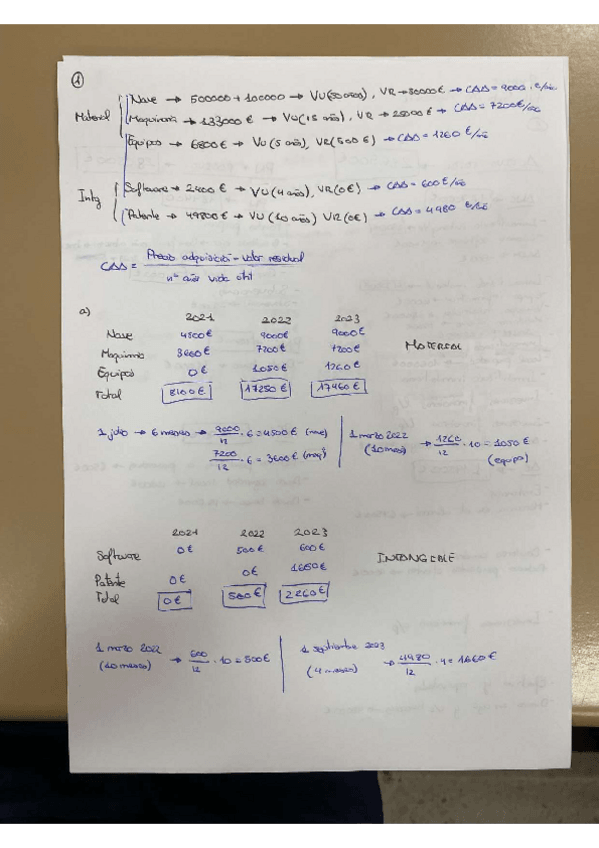 1
Nave → 500000 + 100000 → VU(50 años), VR → 50000€ → CAA = 9000 €/año
Material Maquinaria → 133000 € → VU(15 años), VR → 25000 € → CAA = 7200€/año
Equipos → 6800€ → VU(5 años), VR(500€) → CAA = 1260 €/año
Software → 2400€ → VU(4 años), VR(0€) → CAA = 600€/año
Intg
Patente → 49800€ → VU(10 años) VR(0€) → CAA = 4980 €/año
CAA = Precio adquisición - valor residual
nº años vida útil
a)
2021 2022 2023
Nave 4500€ 9000€ 9000€
Maquinaria 3600€ 7200€ 7200€ MATERIAL
Equipos 0€ 1050€ 1260€
Total 8100€ 17250€ 17460€
1 julio → 6 meses → 9000/12 · 6 = 4500€ (nave) 1 marzo 2022 → 1260/12 · 10 = 1050€
7200/12 · 6 = 3600€ (maq) (10 meses) (equipo)
2021 2022 2023
Software 0€ 500€ 600€ INTANGIBLE
Patente 0€ 0€ 1660€
Total 0€ 500€ 2260€
1 marzo 2022 → 600/12 · 10 = 500€ 1 septiembre 2023 → 4980/12 · 4 = 1660€
(10 meses) (4 meses)